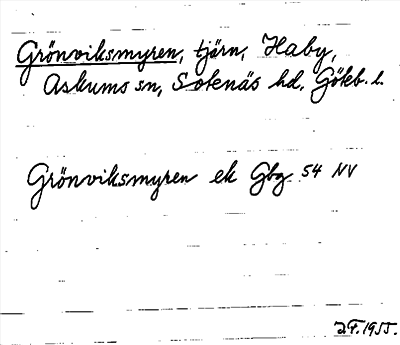 Grönviksmyren, tjärn, Haby,
Askums sn, Sotenäs hd, Göteb. l.
Grönviksmyren ek Gbg 54 NV
1955.